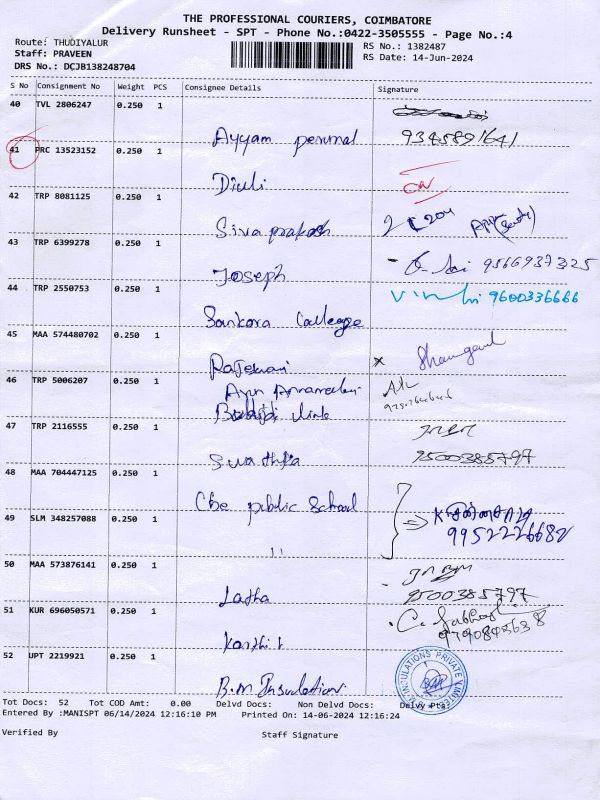 THE PROFESSIONAL COURIERS, COIMBATORE
Delivery Runsheet - SPT - Phone No.:0422-3505555 - Page No.:4
Route: THUDIYALUR
Staff: PRAVEEN
DRS No.: DCJB138248704
RS No.: 1382487
RS Date: 14-Jun-2024
S No Consignment No Weight PCS Consignee Details Signature
40 TVL 2806247 0.250 1
Ayyam perumal 9345891641
41 PRC 13523152 0.250 1
Diuli
42 TRP 8081125 0.250 1
Sivaprakash
43 TRP 6399278 0.250 1
Joseph 9566937325
44 TRP 2550753 0.250 1
9600336666
Sankara College
45 MAA 574480702 0.250 1
Rajeswari
46 TRP 5006207 0.250 1
47 TRP 2116555 0.250 1
Swathka 9500385797
48 MAA 704447125 0.250 1
Cbe public School
49 SLM 348257088 0.250 1
9952226682
11
50 MAA 573876141 0.250 1
Latha 9500385797
51 KUR 696050571 0.250 1
52 UPT 2219921 0.250 1
B.M. Insulation
Tot Docs: 52 Tot COD Amt: 0.00 Delvd Docs: Non Delvd Docs: Delvy Pts:
Entered By :MANISPT 06/14/2024 12:16:10 PM Printed On: 14-06-2024 12:16:24
Verified By Staff Signature